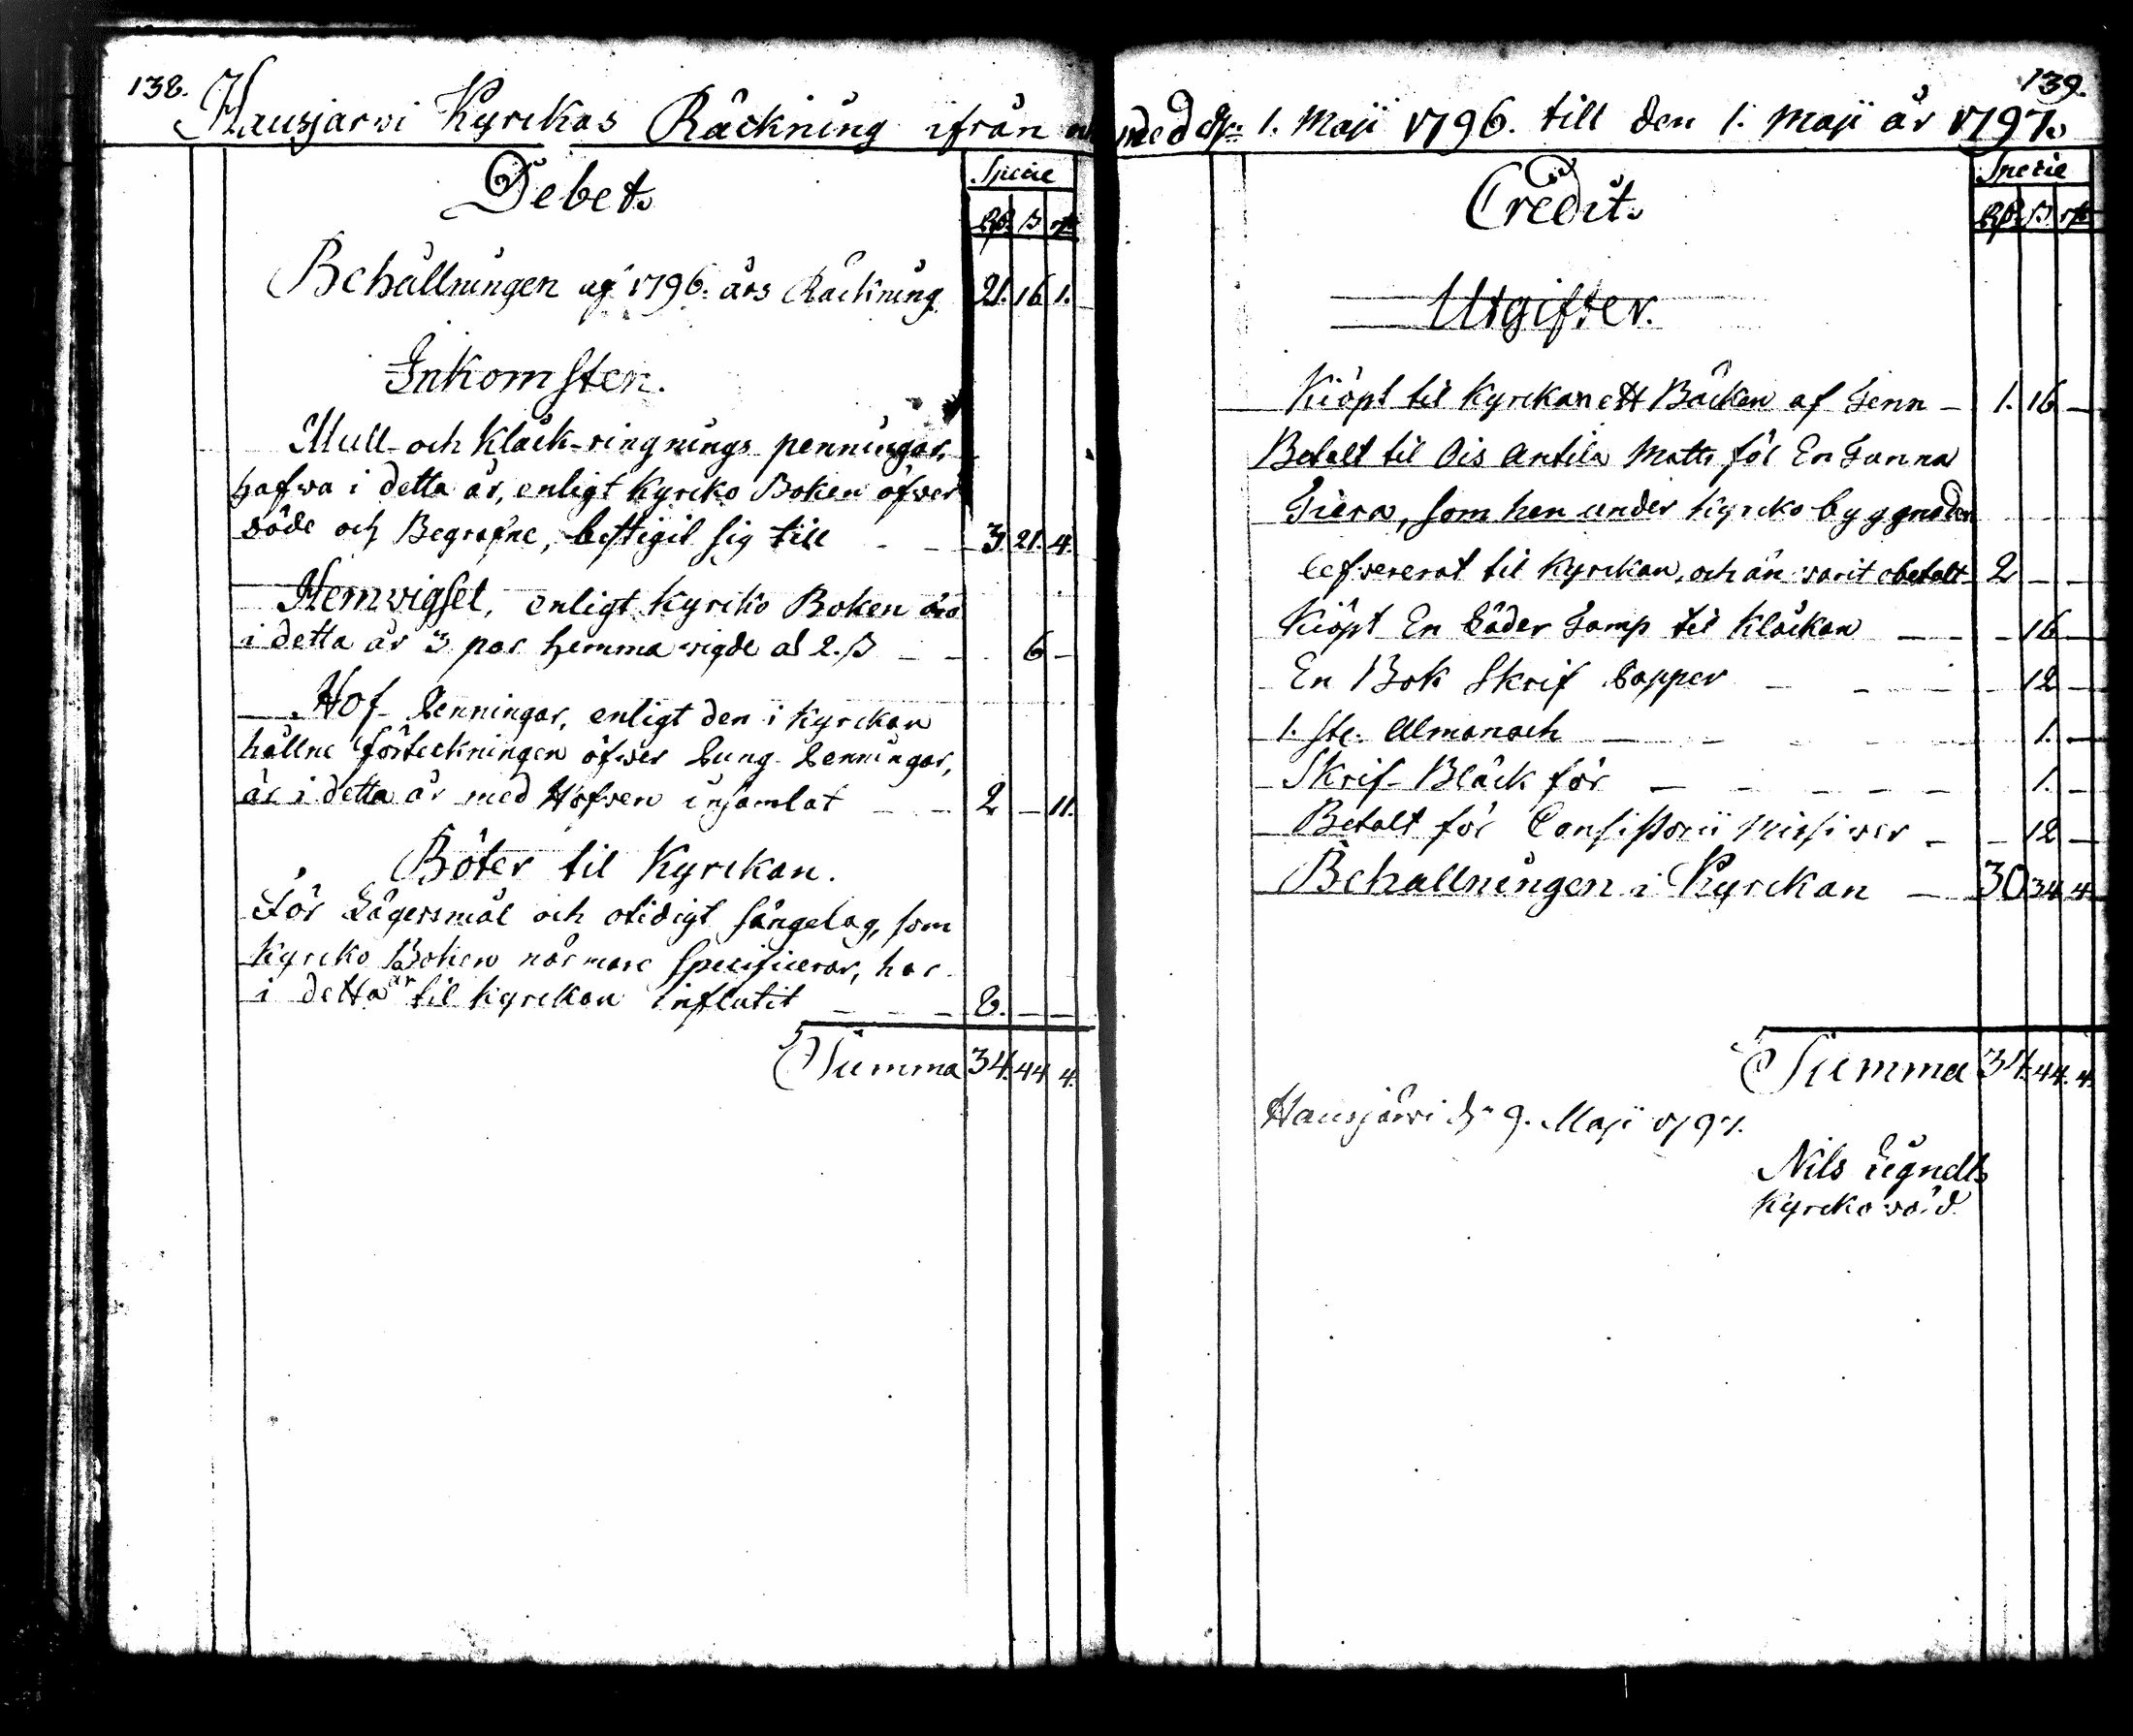 138.
Hausjarvi Kyrckas Räckning ifrån
Debet.
Specie
Rd. ß rs
Behållningen af 1796. års Räckning 21. 16 1.
Inkomsten.
Mull- och Klåck-ringnings penningar,
hafwa i detta år, enligt Kyrcko Boken öfwer
döde och Begrafne, bestigit sig till - - 3. 21. 4.
Hemwigsel, enligt Kyrcko Boken äro
i detta år 3 par hemma wigde a 2. ß - - 6 -
Hof Penningar, enligt den i Kyrckan
hållne förteckningen öfwer Pung Penningar,
är i detta år med Hofwen insamlat - - 2 - 11.
Böter til Kyrckan.
För Lägersmål och otidigt sängelag, som
Kyrcko Boken närmare specificerar, har
i detta år til Kyrckan influtit - - - 8. - -
Summa 34. 44 4.
139.
med dn: 1. Maji 1796. till den 1. Maji år 1797.
Credit.
Specie
Rd. ß. rs
Utgifter.
Kiöpt til Kyrckan ett Bäcken af Tenn - 1. 16 -
Betalt til Ois Antila Matts för En Tunna
Tiera, som han under Kyrcko byggnaden
lefvererat til Kyrckan, och än varit obetalt 2 - -
Kiöpt En Läder Tamp til Klåckan - - - 16 -
En Bok Skrif Papper - - - - 12 -
1. ste. Almanach - - - - - 1. -
Skrif-Bläck för - - - - - 1. -
Betalt för Consistorii Missiver - - 12 -
Behållningen i Kyrckan - 30 34 4
Summa 34. 44. 4.
Hausjärvi dn 9. Maji 1797.
Nils Lignell
Kyrcko värd.